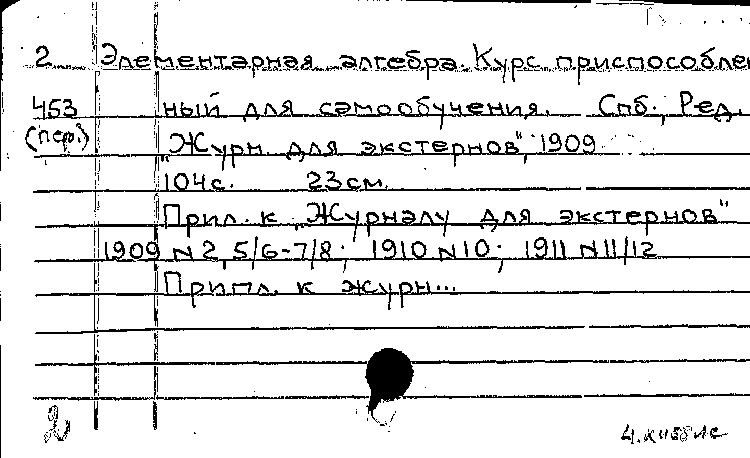 2 Элементарная алгебра. Курс приспособлен
453 ный для самообучения. Спб., Ред.
(пер.) "Журн. для экстернов", 1909
104 с. 23 см.
Прил. к "Журналу для экстернов"
1909 N 2, 5/6-7/8; 1910 N 10; 1911 N 11/12
Припл. к журн...
2